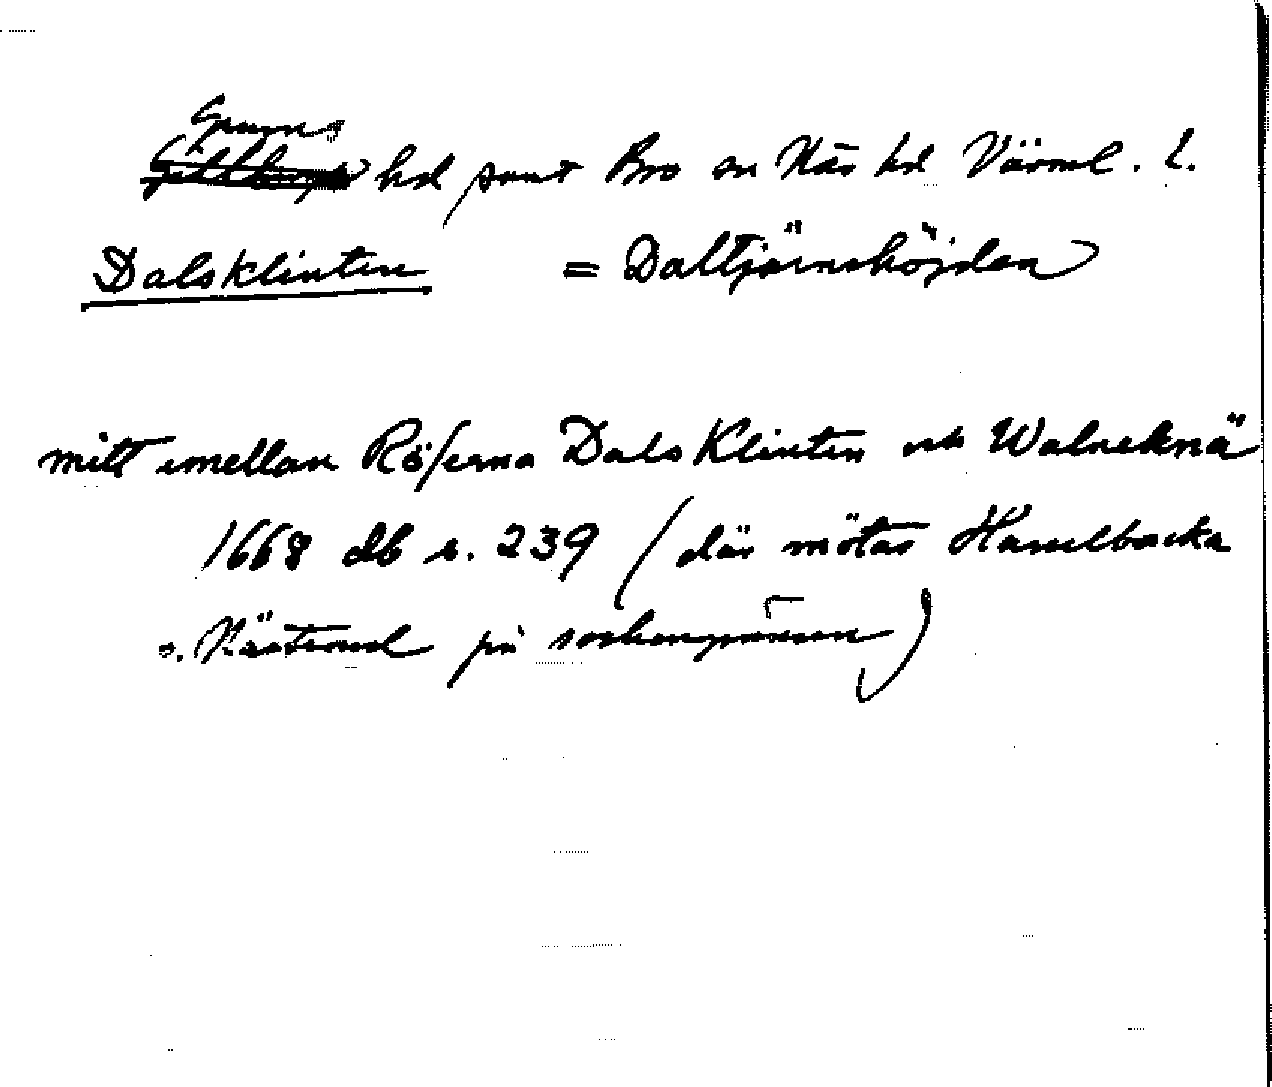 Grums
Gillbergs hd samt Bro sn Näs hd Värml. l.
Dalsklinten = Daltjärnshöjden
mitt emellan Röserna Dals Klinten och Walneknä
1668 db s. 239 (där mötas Hasselbacka
o. Nästrand på sockengränsen)